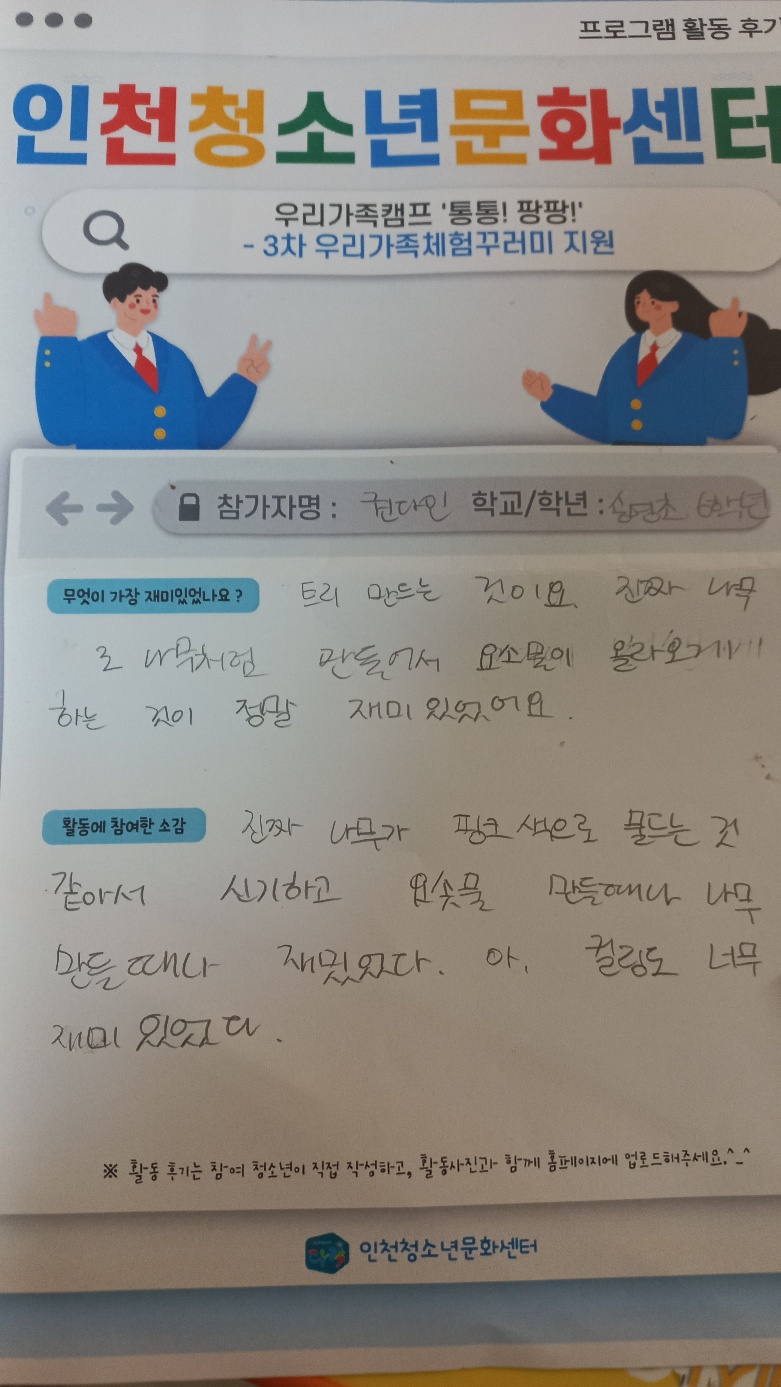 프로그램 활동 후기
인천청소년문화센터
우리가족캠프 '통통! 팡팡!'
- 3차 우리가족체험꾸러미 지원
참가자명 : 권다인 학교/학년 : 6학년
무엇이 가장 재미있었나요 ? 트리 만드는 것이요. 진짜 나무
로 나무처럼 만들어서 요소물이 올라오게
하는 것이 정말 재미있었어요.
활동에 참여한 소감 진짜 나무가 핑크색으로 물드는 것
같아서 신기하고 요솟물 만들때나 나무
만들때나 재밌었다. 아, 컬링도 너무
재미 있었다.
※ 활동 후기는 참여 청소년이 직접 작성하고, 활동사진과 함께 홈페이지에 업로드해주세요.^_^
인천청소년문화센터